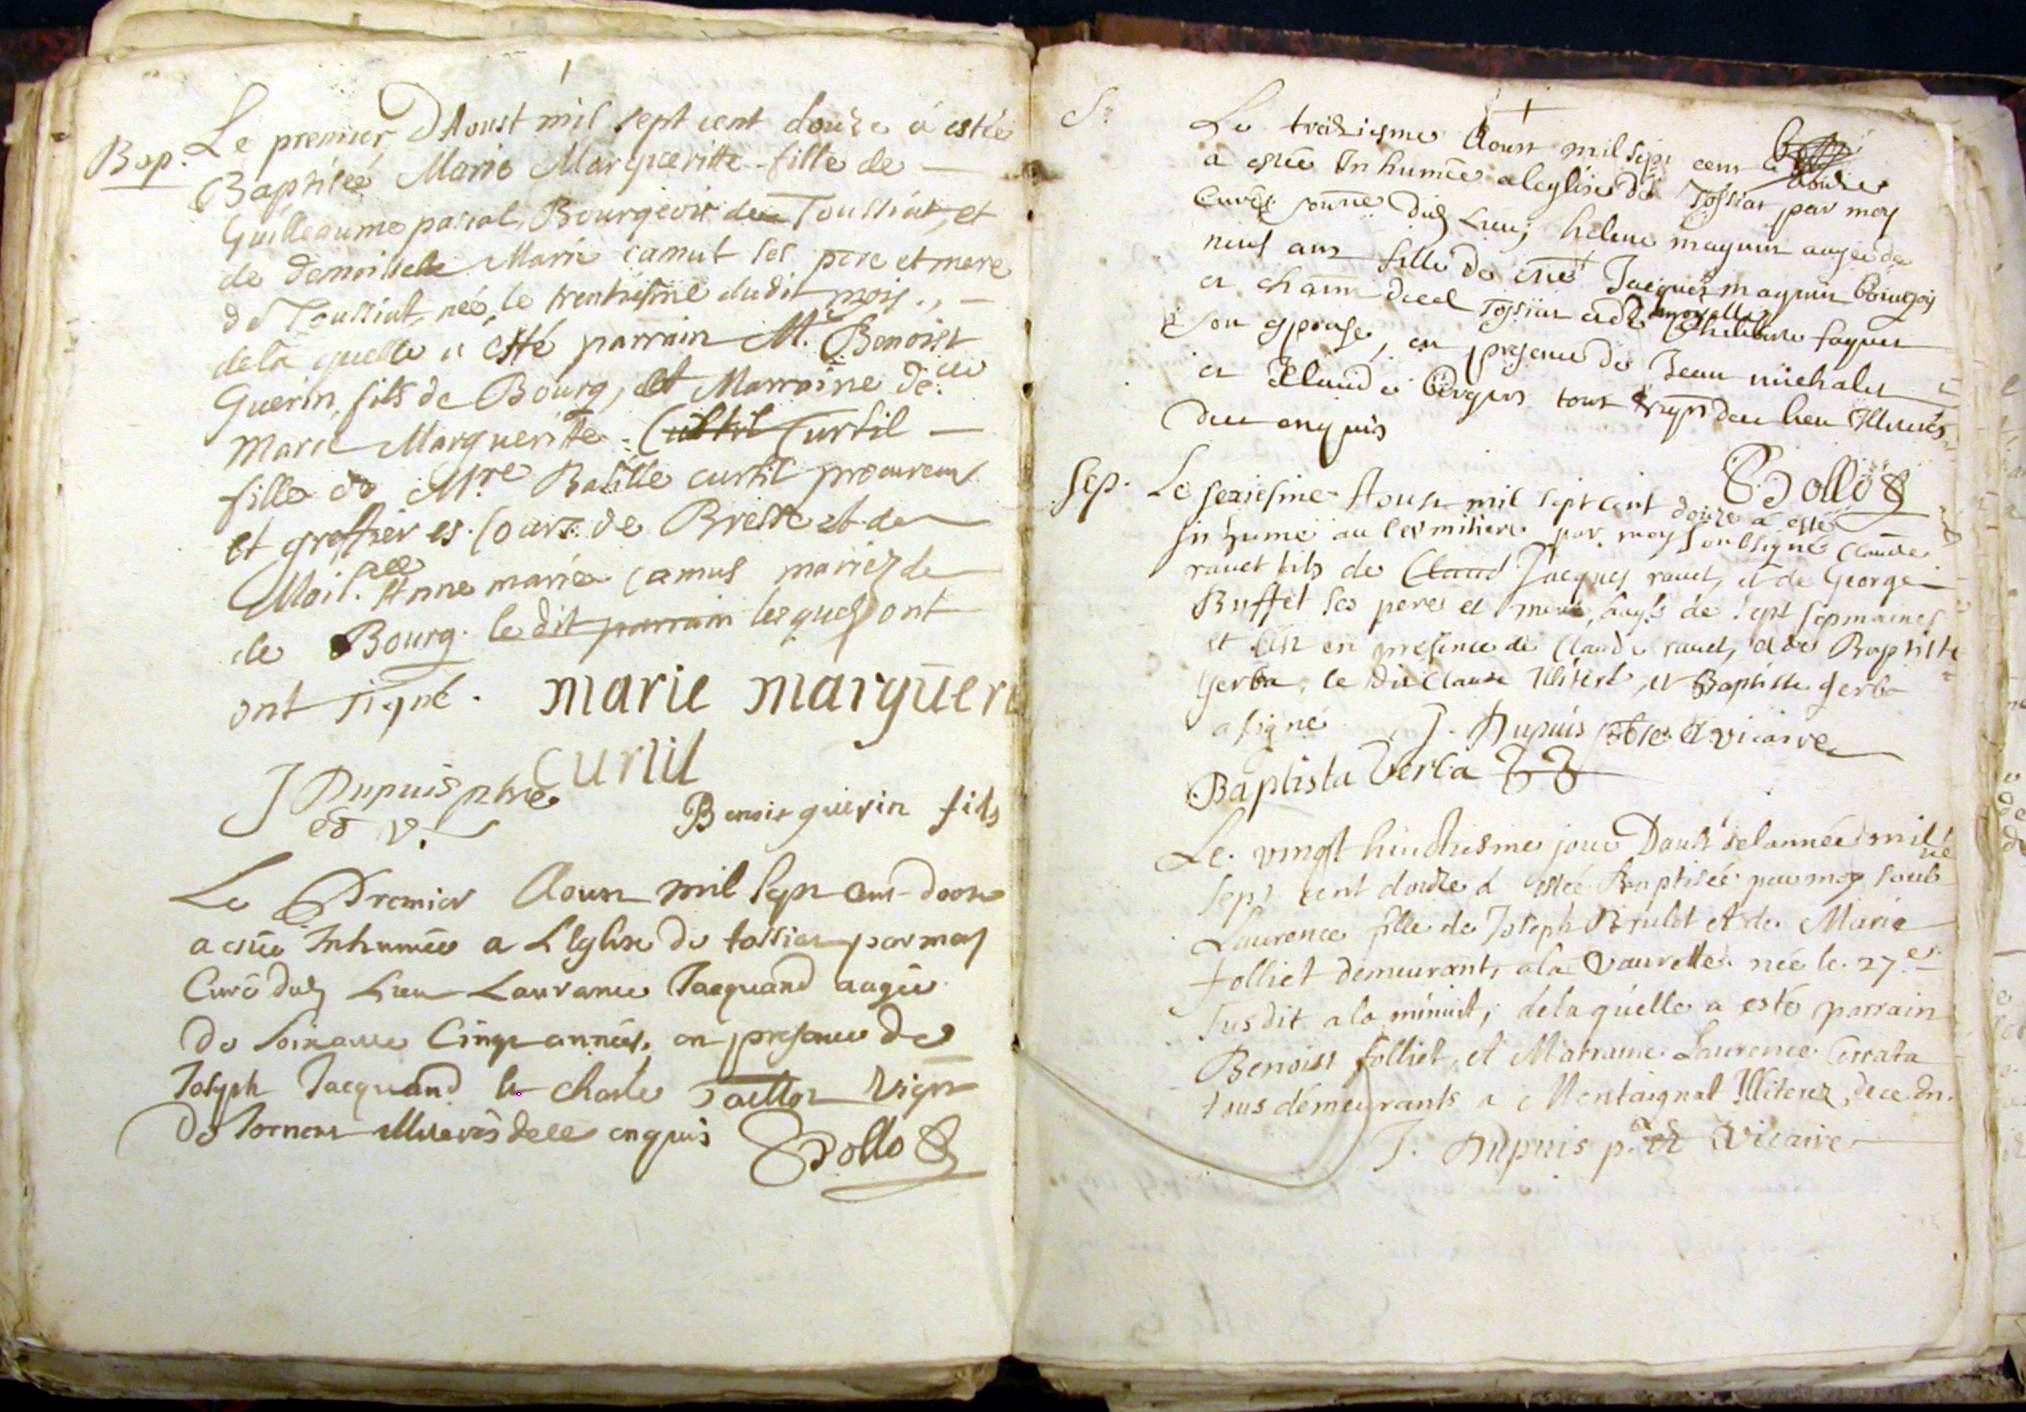 Bap. Le premier D'Aoust mil sept cent douze a estée
Baptisée Marie Margueritte fille de
Guilleaume pascal Bourgeois de Toussiat, et
de demoiselle Marie camut ses pere et mere
de Toussiat, née le trentiesme dudit mois.,
de la quelle a esté parrain Mr. Benoist
Guerin, fils de Bourg, et Marraine De.lle
Marie Margueritte Curtil Curtil
fille de Mre Basille curtil procureur
et greffier es Cours de Bresse et de
Moil.lle Anne marie camus mariez de
de Bourg. le dit parrain lesquels ont
ont signé. marie margueri
curtil
J Dupuis ptre
et v.
Benoit guerin fils
Le Premier Aoust mil sept cent douze
a estée Inhumée a L'Eglise de tossiat par moy
Curé dud Lieu Laurance Jacquand aagée
de soixante Cinq années, en presence de
Joseph Jacquand & Charle vign
de Tornas Illiterés de ce enquis
Dollo
S.
Le treiziesme Aoust mil sept cent douze
a estée Inhumée a leglise de Tossiat par moy
Curé dud Lieu; helene maguin aagée de
neuf ans fille de Jacques maguin bourgois
et de
son espouse, en presence de Jean michalet
et Claude tous du lieu Illiterés
de ce enquis
Dollo
Sep. Le seziesme Aoust mil sept cent douze a esté
inhumé au Cemitiere par moy soubsigné Claude
ravet fils de Claud Jacques ravet, et de George
Buffet ses pere et mere, aagé de sept sepmaines
et en presence de Claude ravet, et de Baptiste
gerba, le dit Claude Illiteré, et Baptiste gerba
a signé J. Dupuis ptre et vicaire
Baptista Gerba
Le vingt huictiesme jour Daust de lannée mil
sept cent douze a estée Baptisée par moy soub.né
Laurence fille de Joseph Brulot et de Marie
folliet demeurants a la Vavrette née le 27e
susdit a la minuit; de la quelle a esté parrain
Benoist folliet, et Matraine Laurence Cerrata
tous demeurants a Montaignat Illiterez, de ce en.
J. Dupuis p. et Vicaire